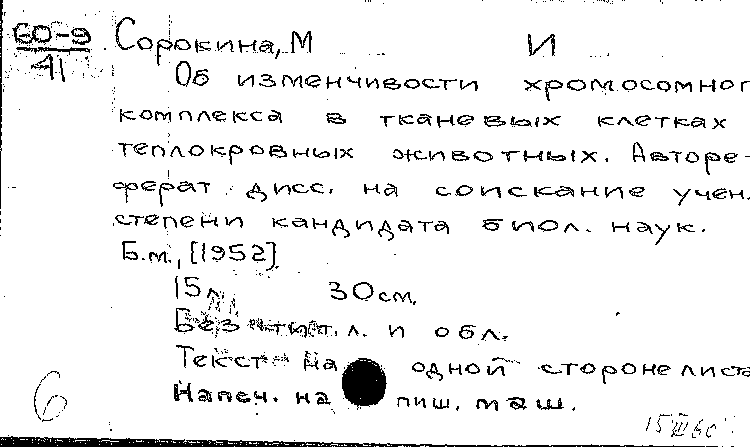 60-9
41
Сорокина, М И
Об изменчивости хромосомног
комплекса в тканевых клетках
теплокровных животных. Авторе-
ферат дисс. на соискание учен.
степени кандидата биол. наук.
Б.м., [1952].
15 л. 30 см.
Без тит. л. и обл.
Текст на одной стороне листа
Напеч. на пиш. маш.
6
15 III 60